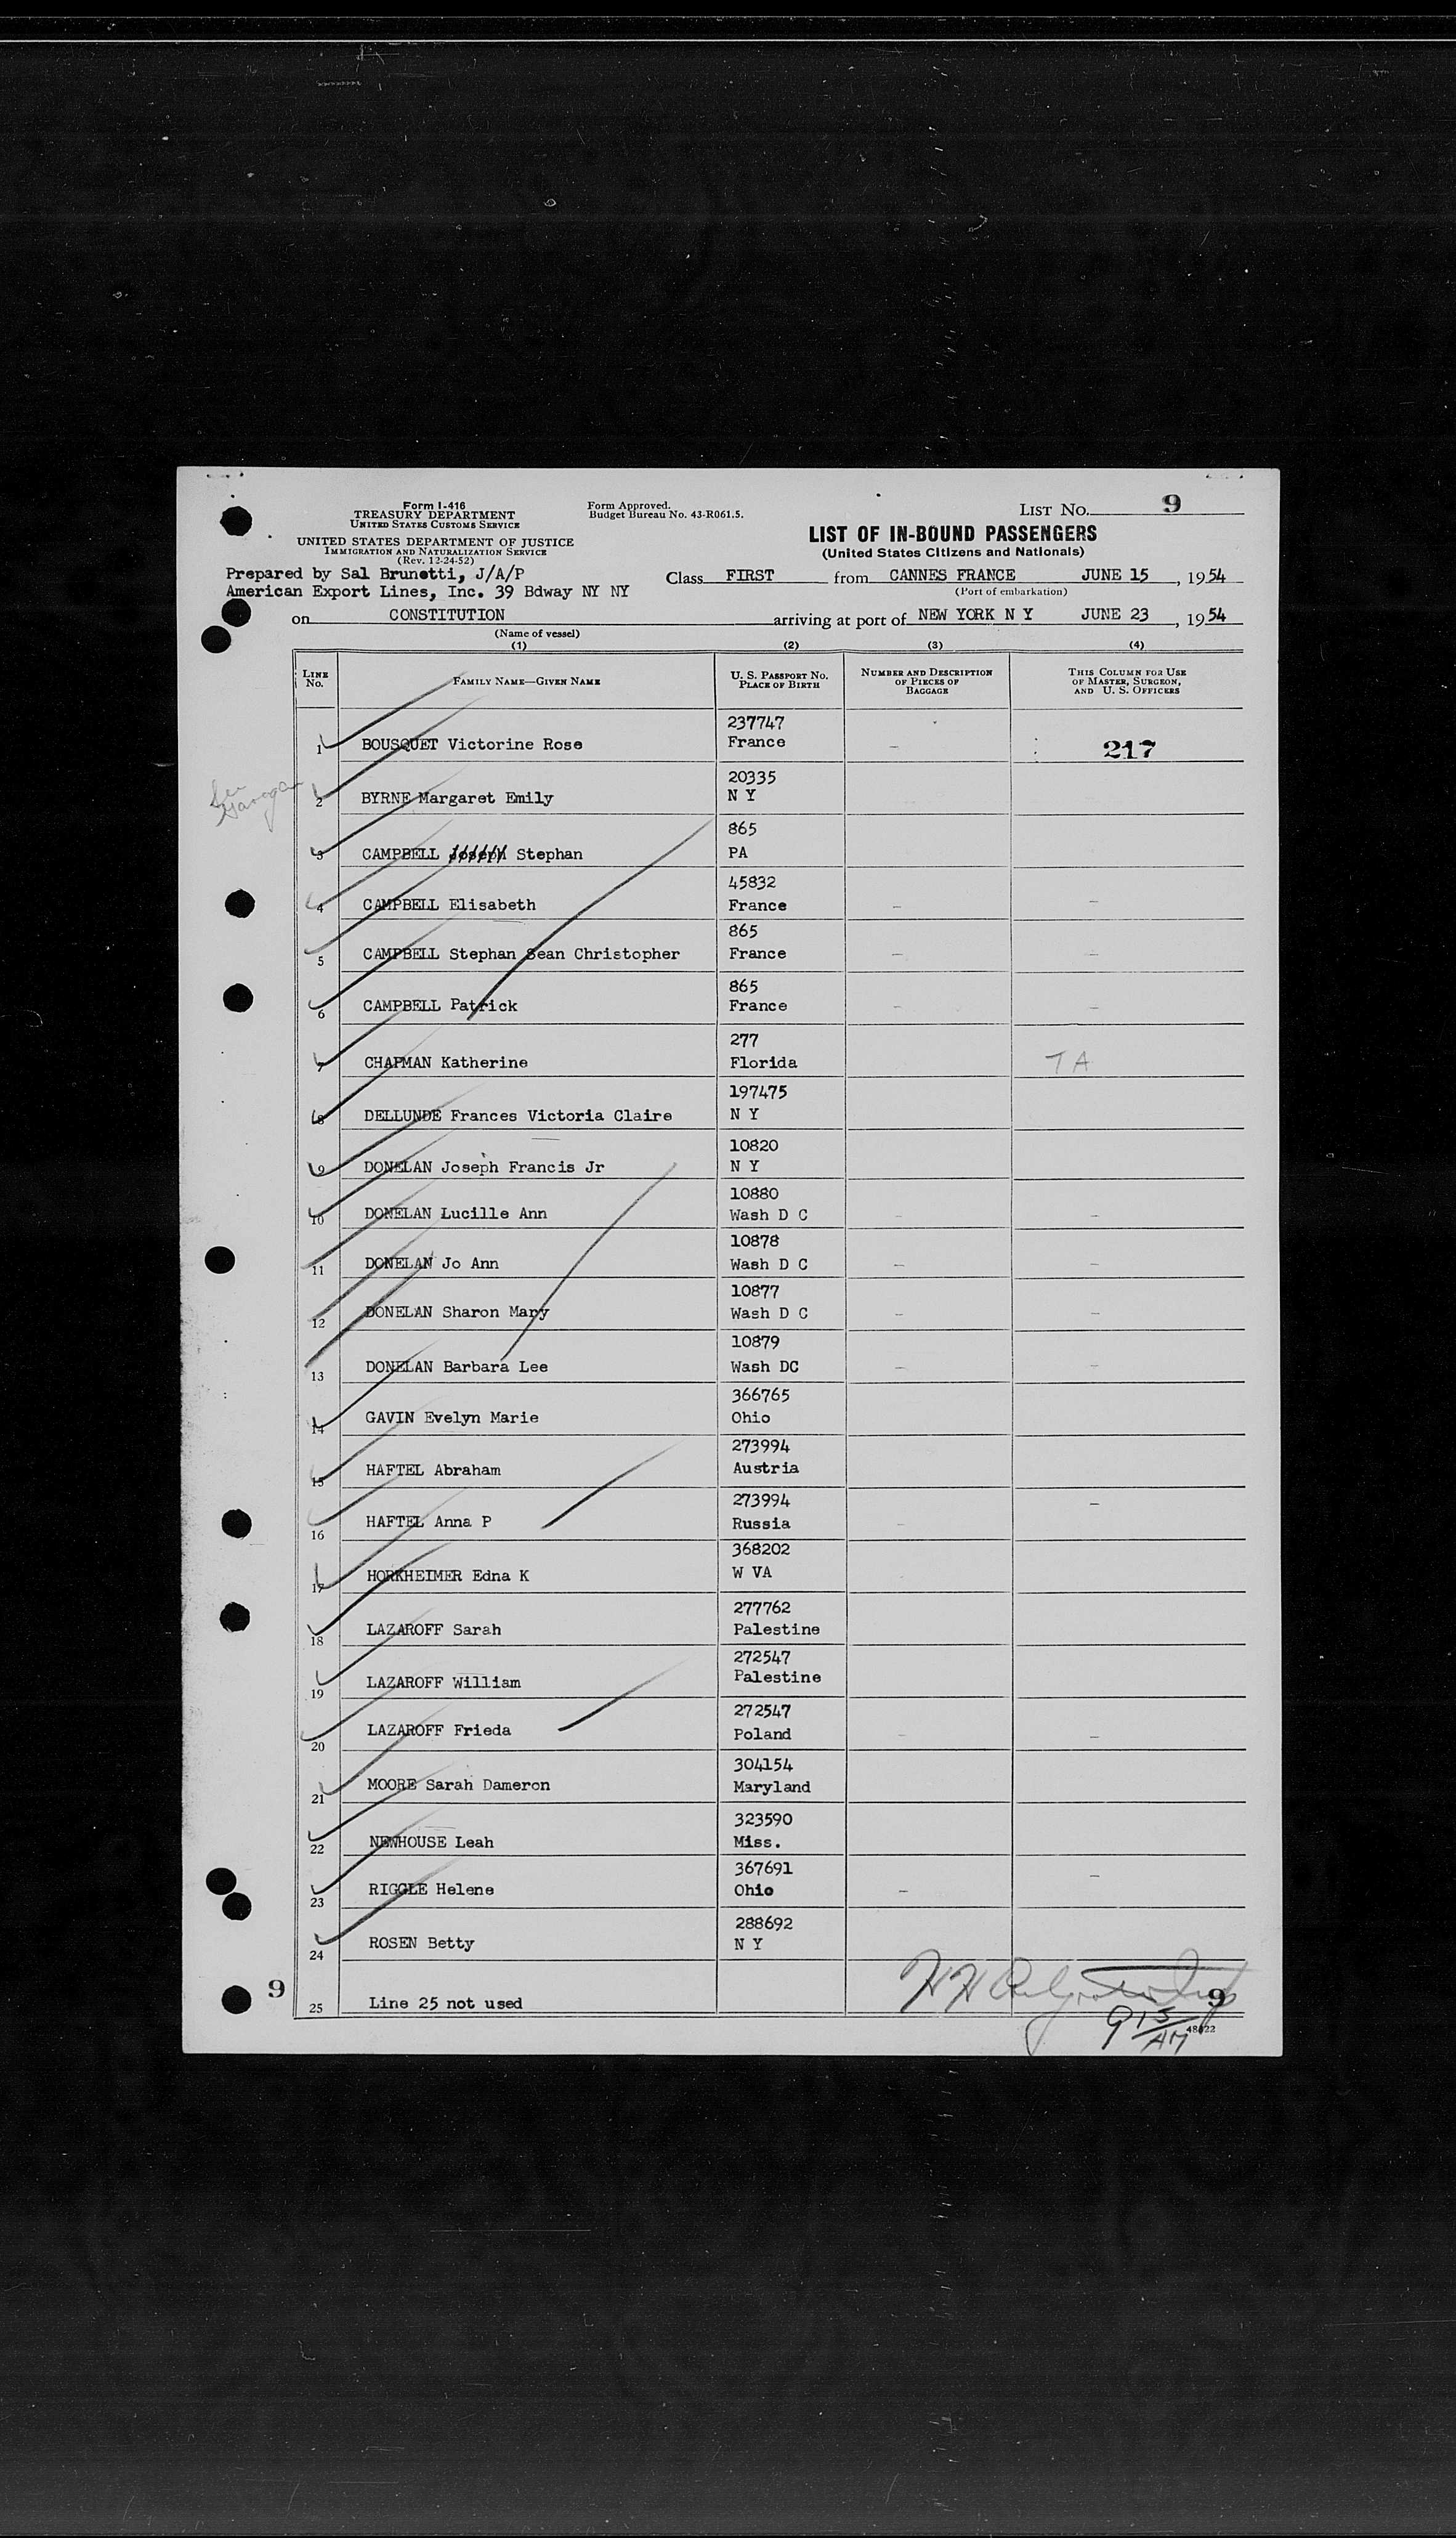 Form I-416
TREASURY DEPARTMENT
UNITED STATES CUSTOMS SERVICE
UNITED STATES DEPARTMENT OF JUSTICE
IMMIGRATION AND NATURALIZATION SERVICE
(Rev. 12-24-52)
Form Approved.
Budget Bureau No. 43-R061.5.
LIST No. 9
LIST OF IN-BOUND PASSENGERS
(United States Citizens and Nationals)
Prepared by Sal Brunetti, J/A/P
American Export Lines, Inc. 39 Bdway NY NY
Class FIRST from CANNES FRANCE JUNE 15, 1954
(Port of embarkation)
on CONSTITUTION arriving at port of NEW YORK N Y JUNE 23, 1954
(Name of vessel)
(1) (2) (3) (4)
LINE No. FAMILY NAME—GIVEN NAME U. S. PASSPORT No. PLACE OF BIRTH NUMBER AND DESCRIPTION OF PIECES OF BAGGAGE THIS COLUMN FOR USE OF MASTER, SURGEON, AND U. S. OFFICERS
237747
1 BOUSQUET Victorine Rose France - 217
20335
2 BYRNE Margaret Emily N Y
865
3 CAMPBELL Joseph Stephan PA
45832
4 CAMPBELL Elisabeth France - -
865
5 CAMPBELL Stephan Sean Christopher France - -
865
6 CAMPBELL Patrick France - -
277
7 CHAPMAN Katherine Florida T A
197475
8 DELLUNDE Frances Victoria Claire N Y
10820
9 DONELAN Joseph Francis Jr N Y
10880
10 DONELAN Lucille Ann Wash D C - -
10878
11 DONELAN Jo Ann Wash D C - -
10877
12 DONELAN Sharon Mary Wash D C - -
10879
13 DONELAN Barbara Lee Wash DC - -
366765
14 GAVIN Evelyn Marie Ohio
273994
15 HAFTEL Abraham Austria
273994
16 HAFTEL Anna P Russia - -
368202
17 HORKHEIMER Edna K W VA
277762
18 LAZAROFF Sarah Palestine
272547
19 LAZAROFF William Palestine
272547
20 LAZAROFF Frieda Poland - -
304154
21 MOORE Sarah Dameron Maryland
323590
22 NEWHOUSE Leah Miss.
367691
23 RIGGLE Helene Ohio - -
288692
24 ROSEN Betty N Y
9
25 Line 25 not used
9
9 15/AM